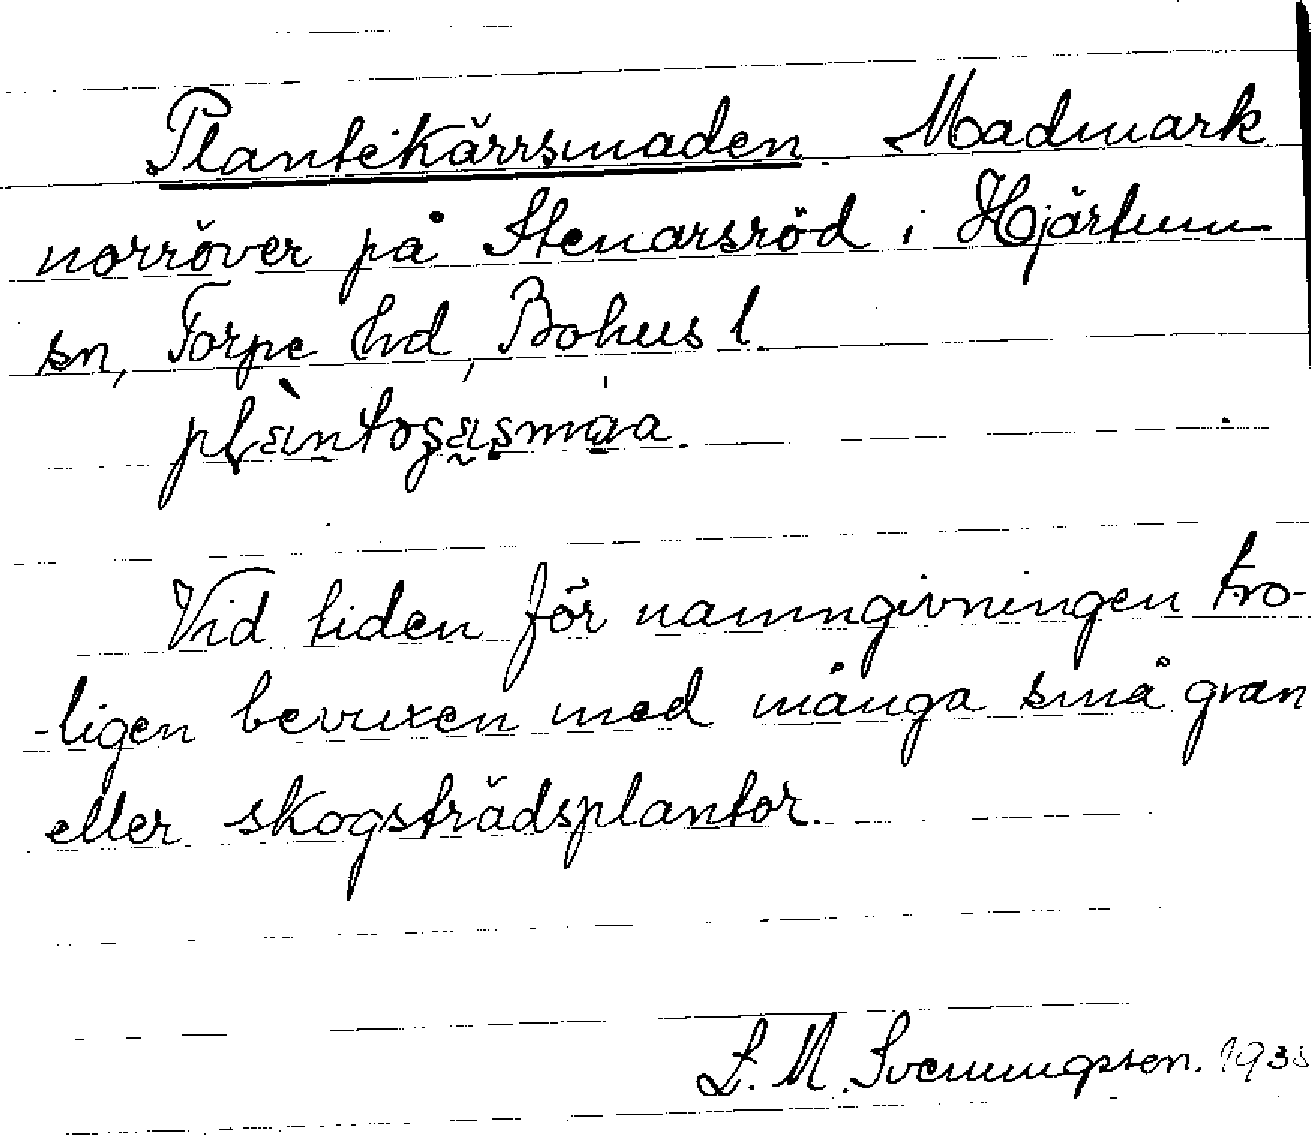 Plantekärrsmaden. Madmark
norröver på Stenarsröd i Hjärtum
sn, Torpe hd, Bohus l.
Vid tiden för namngivningen tro-
-ligen bevuxen med många små gran
eller skogsträdsplantor.
L. M. Svenungsson. 1935